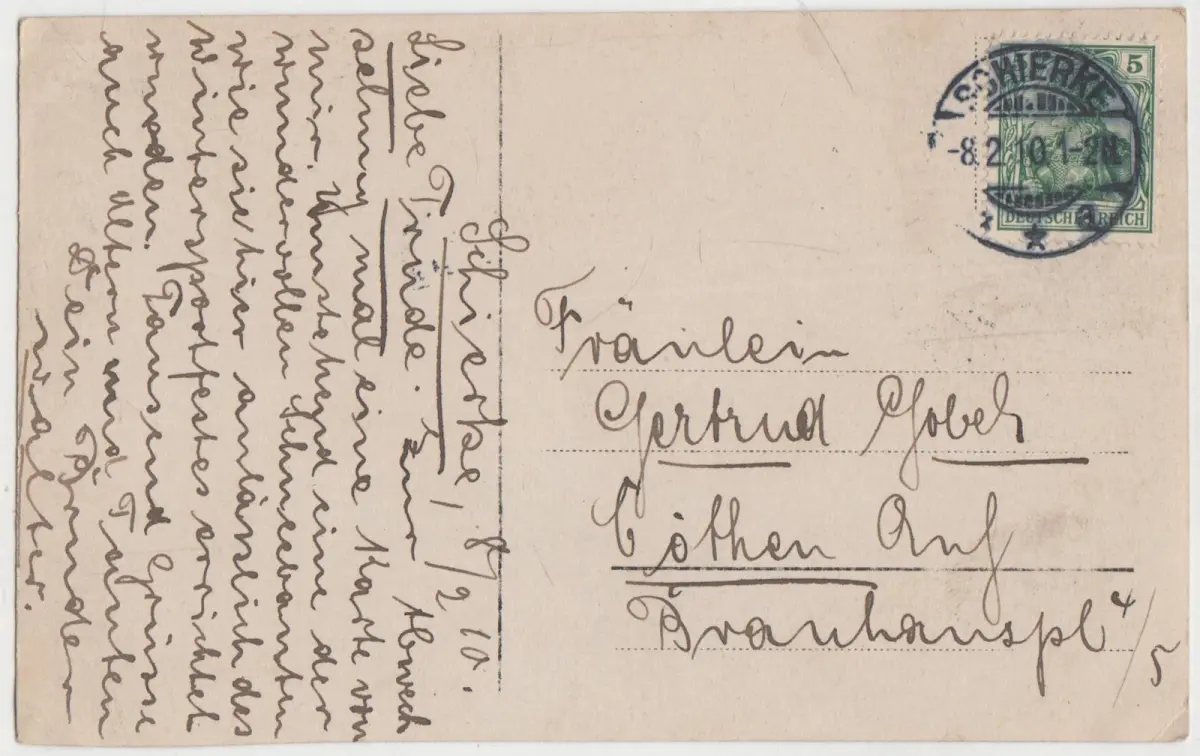 Schierke, 8/2 10.
Liebe Trude. Zur Abwech
selung mal eine Karte von
mir. Umstehend eine der
wundervollen Schneebauten
wie sie hier anläszlich des
Wintersportfestes errichtet
wurden. Tausend Grüsse
auch Altern und Tanten
Dein Bruder
Walter.
SCHIERKE
-8.2.10.1-2N.
a
5
DEUTSCHES REICH
Fräulein
Gertrud Gobel
Cöthen Anh
Brauhauspl 4/5